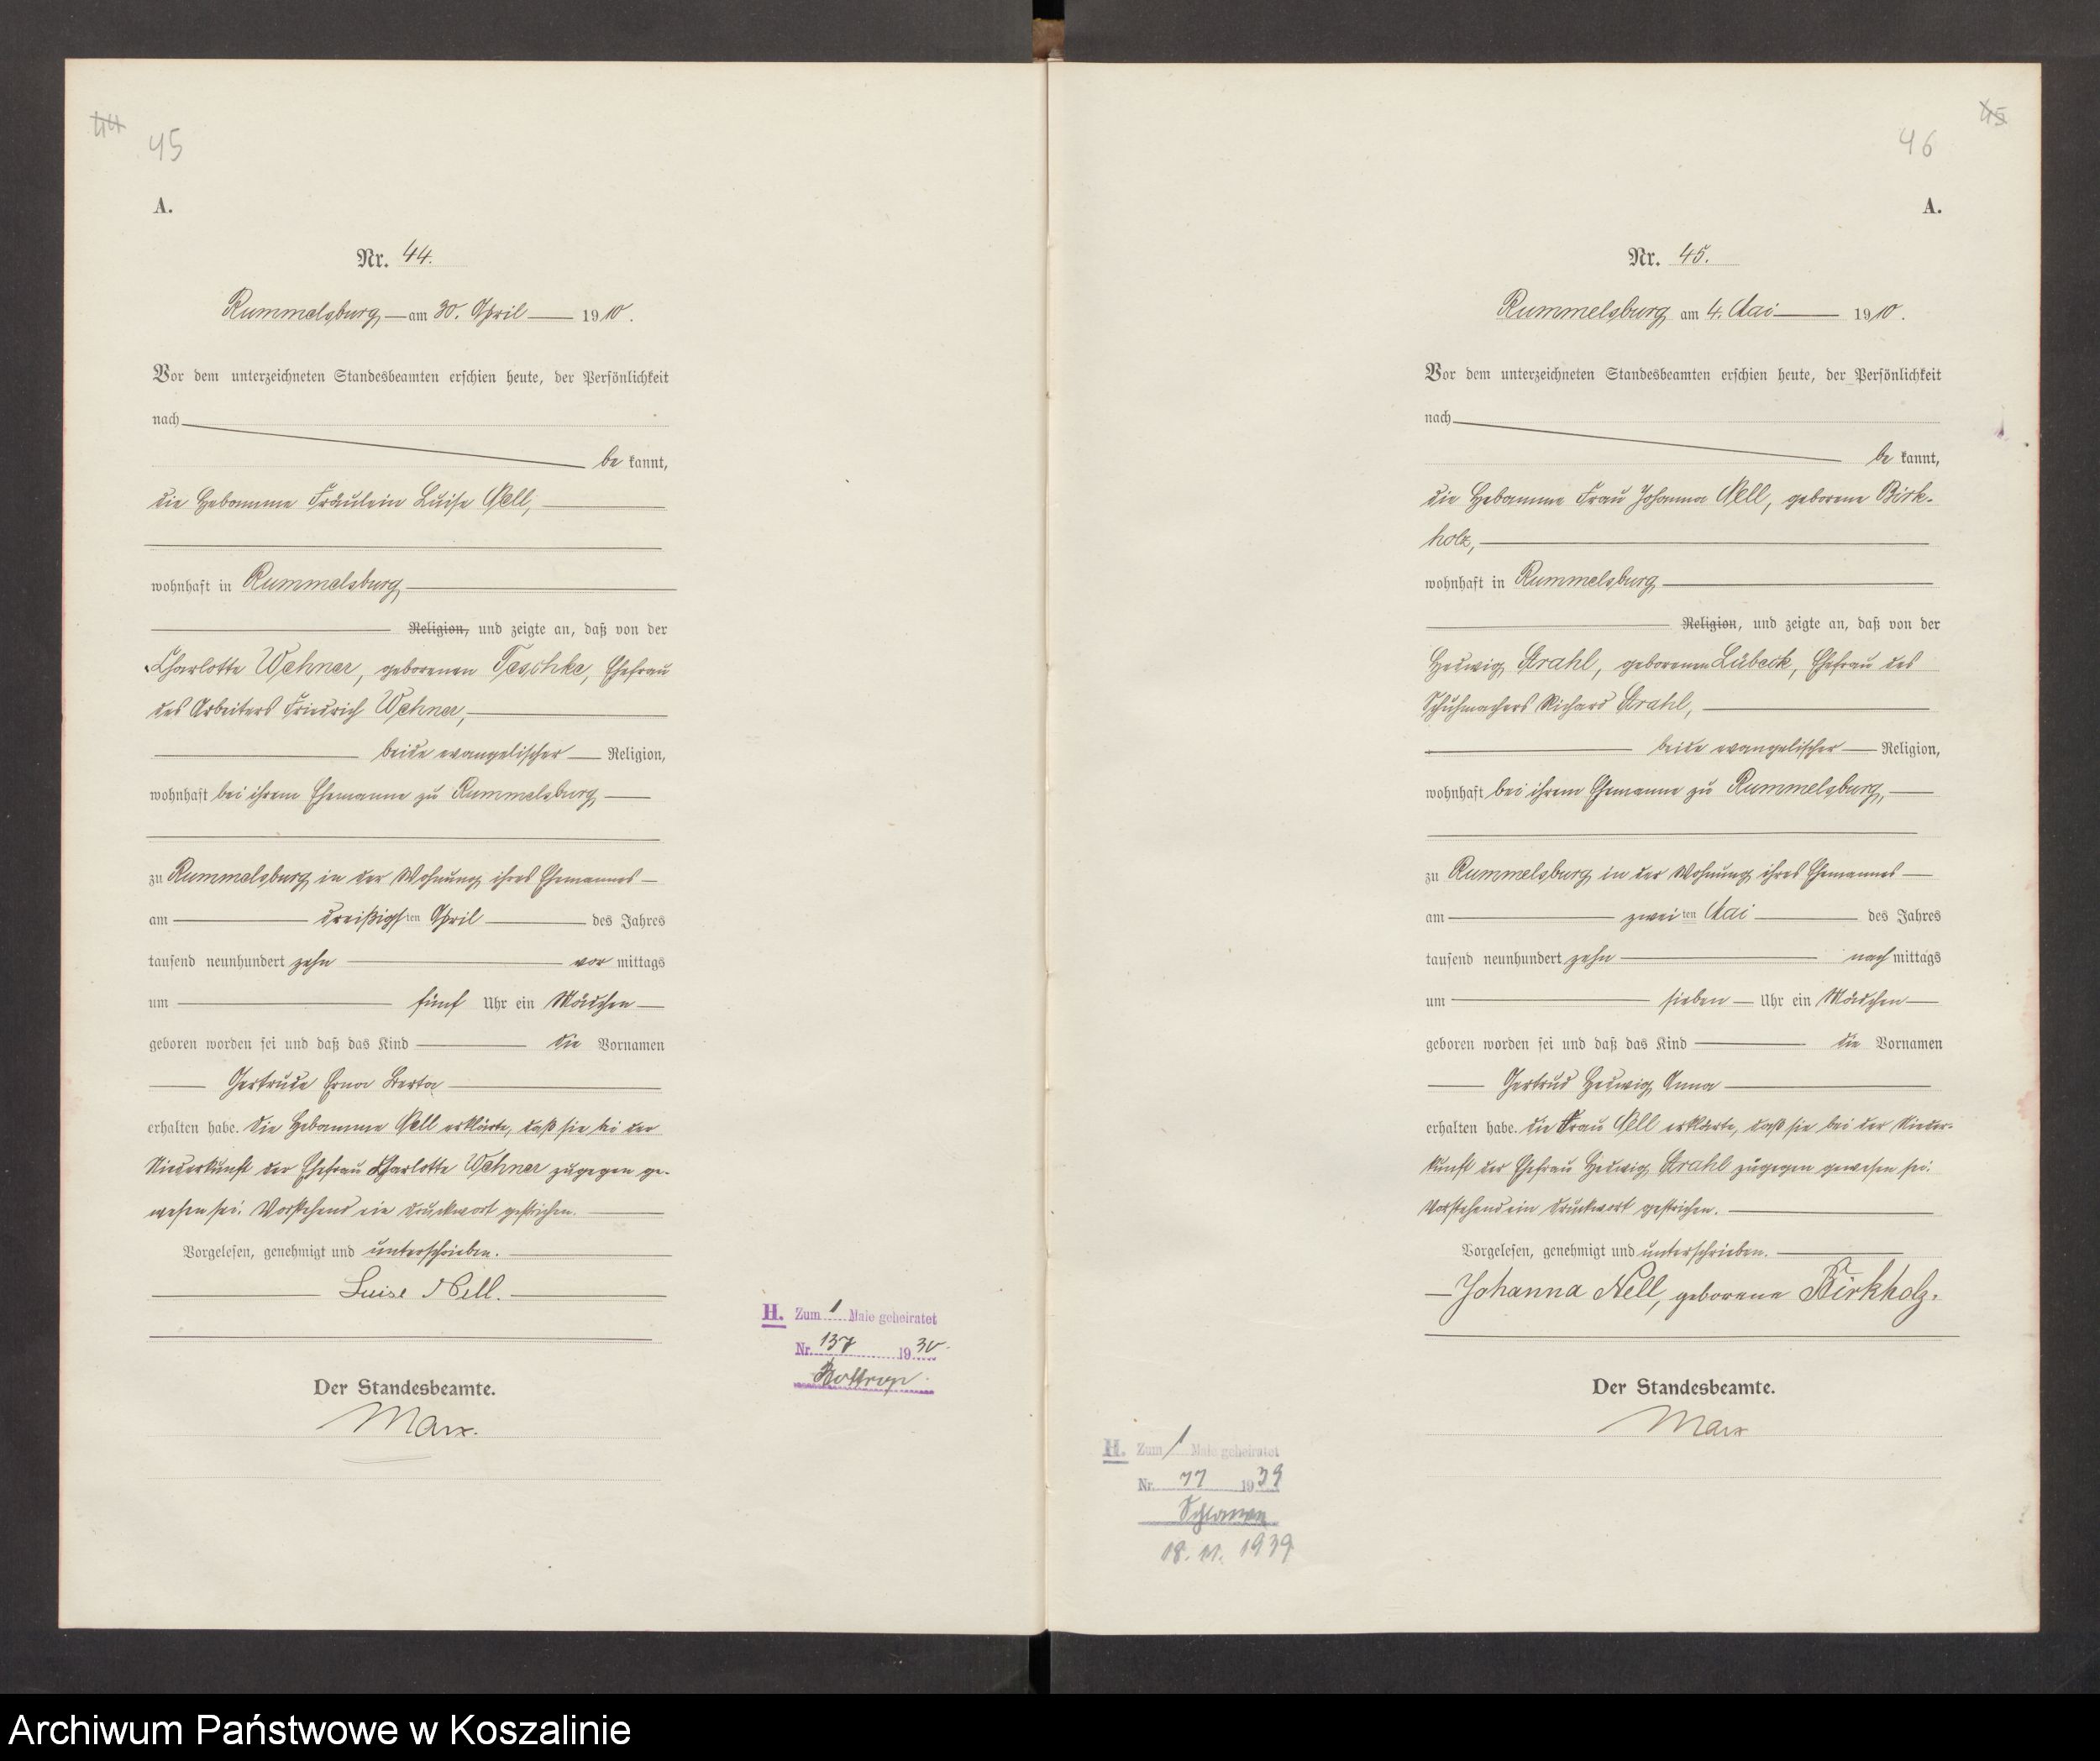 44
45
A.
Nr. 44.
Rummelsburg, am 30. April 1910.
Vor dem unterzeichneten Standesbeamten erschien heute, der Persönlichkeit
nach
be kannt,
die Hebamme Fräulein Luise Nell,
wohnhaft in Rummelsburg,
Religion, und zeigte an, daß von der
Charlotte Wehner, geborenen Teschke, Ehefrau
des Arbeiters Friedrich Wehner,
beide evangelischer Religion,
wohnhaft bei ihrem Ehemanne zu Rummelsburg,
zu Rummelsburg in der Wohnung ihres Ehemannes
am dreißigsten April des Jahres
tausend neunhundert zehn vor mittags
um fünf Uhr ein Mädchen
geboren worden sei und daß das Kind die Vornamen
Gertrude Erna Berta
erhalten habe. Die Hebamme Nell erklärte, daß sie bei der
Niederkunft der Ehefrau Charlotte Wehner zugegen ge-
wesen sei. Vorstehend ein Druckwort gestrichen.
Vorgelesen, genehmigt und unterschrieben.
Luise Nell.
Der Standesbeamte.
Marx.
H. Zum 1 Male geheiratet
Nr. 1930.
Bottrop.
45
46
A.
Nr. 45.
Rummelsburg am 4. Mai 1910.
Vor dem unterzeichneten Standesbeamten erschien heute, der Persönlichkeit
nach
be kannt,
die Hebamme Frau Johanna Nell, geborene Birk-
holz,
wohnhaft in Rummelsburg
Religion, und zeigte an, daß von der
Hedwig Strahl, geborenen Lübeck, Ehefrau des
Schuhmachers Richard Strahl,
beide evangelischer Religion,
wohnhaft bei ihrem Ehemanne zu Rummelsburg,
zu Rummelsburg in der Wohnung ihres Ehemannes
am zweiten Mai des Jahres
tausend neunhundert zehn nach mittags
um sieben Uhr ein Mädchen
geboren worden sei und daß das Kind die Vornamen
Gertrud Hedwig Anna
erhalten habe. Die Frau Nell erklärte, daß sie bei der Nieder-
kunft der Ehefrau Hedwig Strahl zugegen gewesen sei.
Vorstehend ein Druckwort gestrichen.
Vorgelesen, genehmigt und unterschrieben.
Johanna Nell, geborene Birkholz.
Der Standesbeamte.
Marx
H. Zum 1 Male geheiratet
Nr. 77 1939
Schlawe
18. 11. 1939
Archiwum Państwowe w Koszalinie